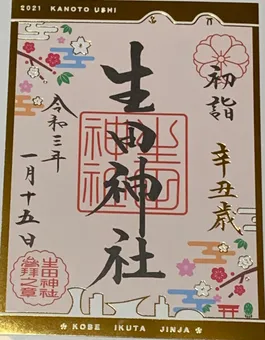 2021 KANOTO USHI
初詣
辛丑歳
生田神社
生田神社
令和三年
一月十五日
生田神社
参拝之章
KOBE IKUTA JINJA